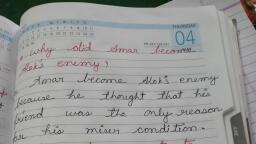 THURSDAY
04
why did Amar become
Alok's enemy?
Amar become Alok's enemy
because he thought that his
friend was the only reason
for his miser condition.